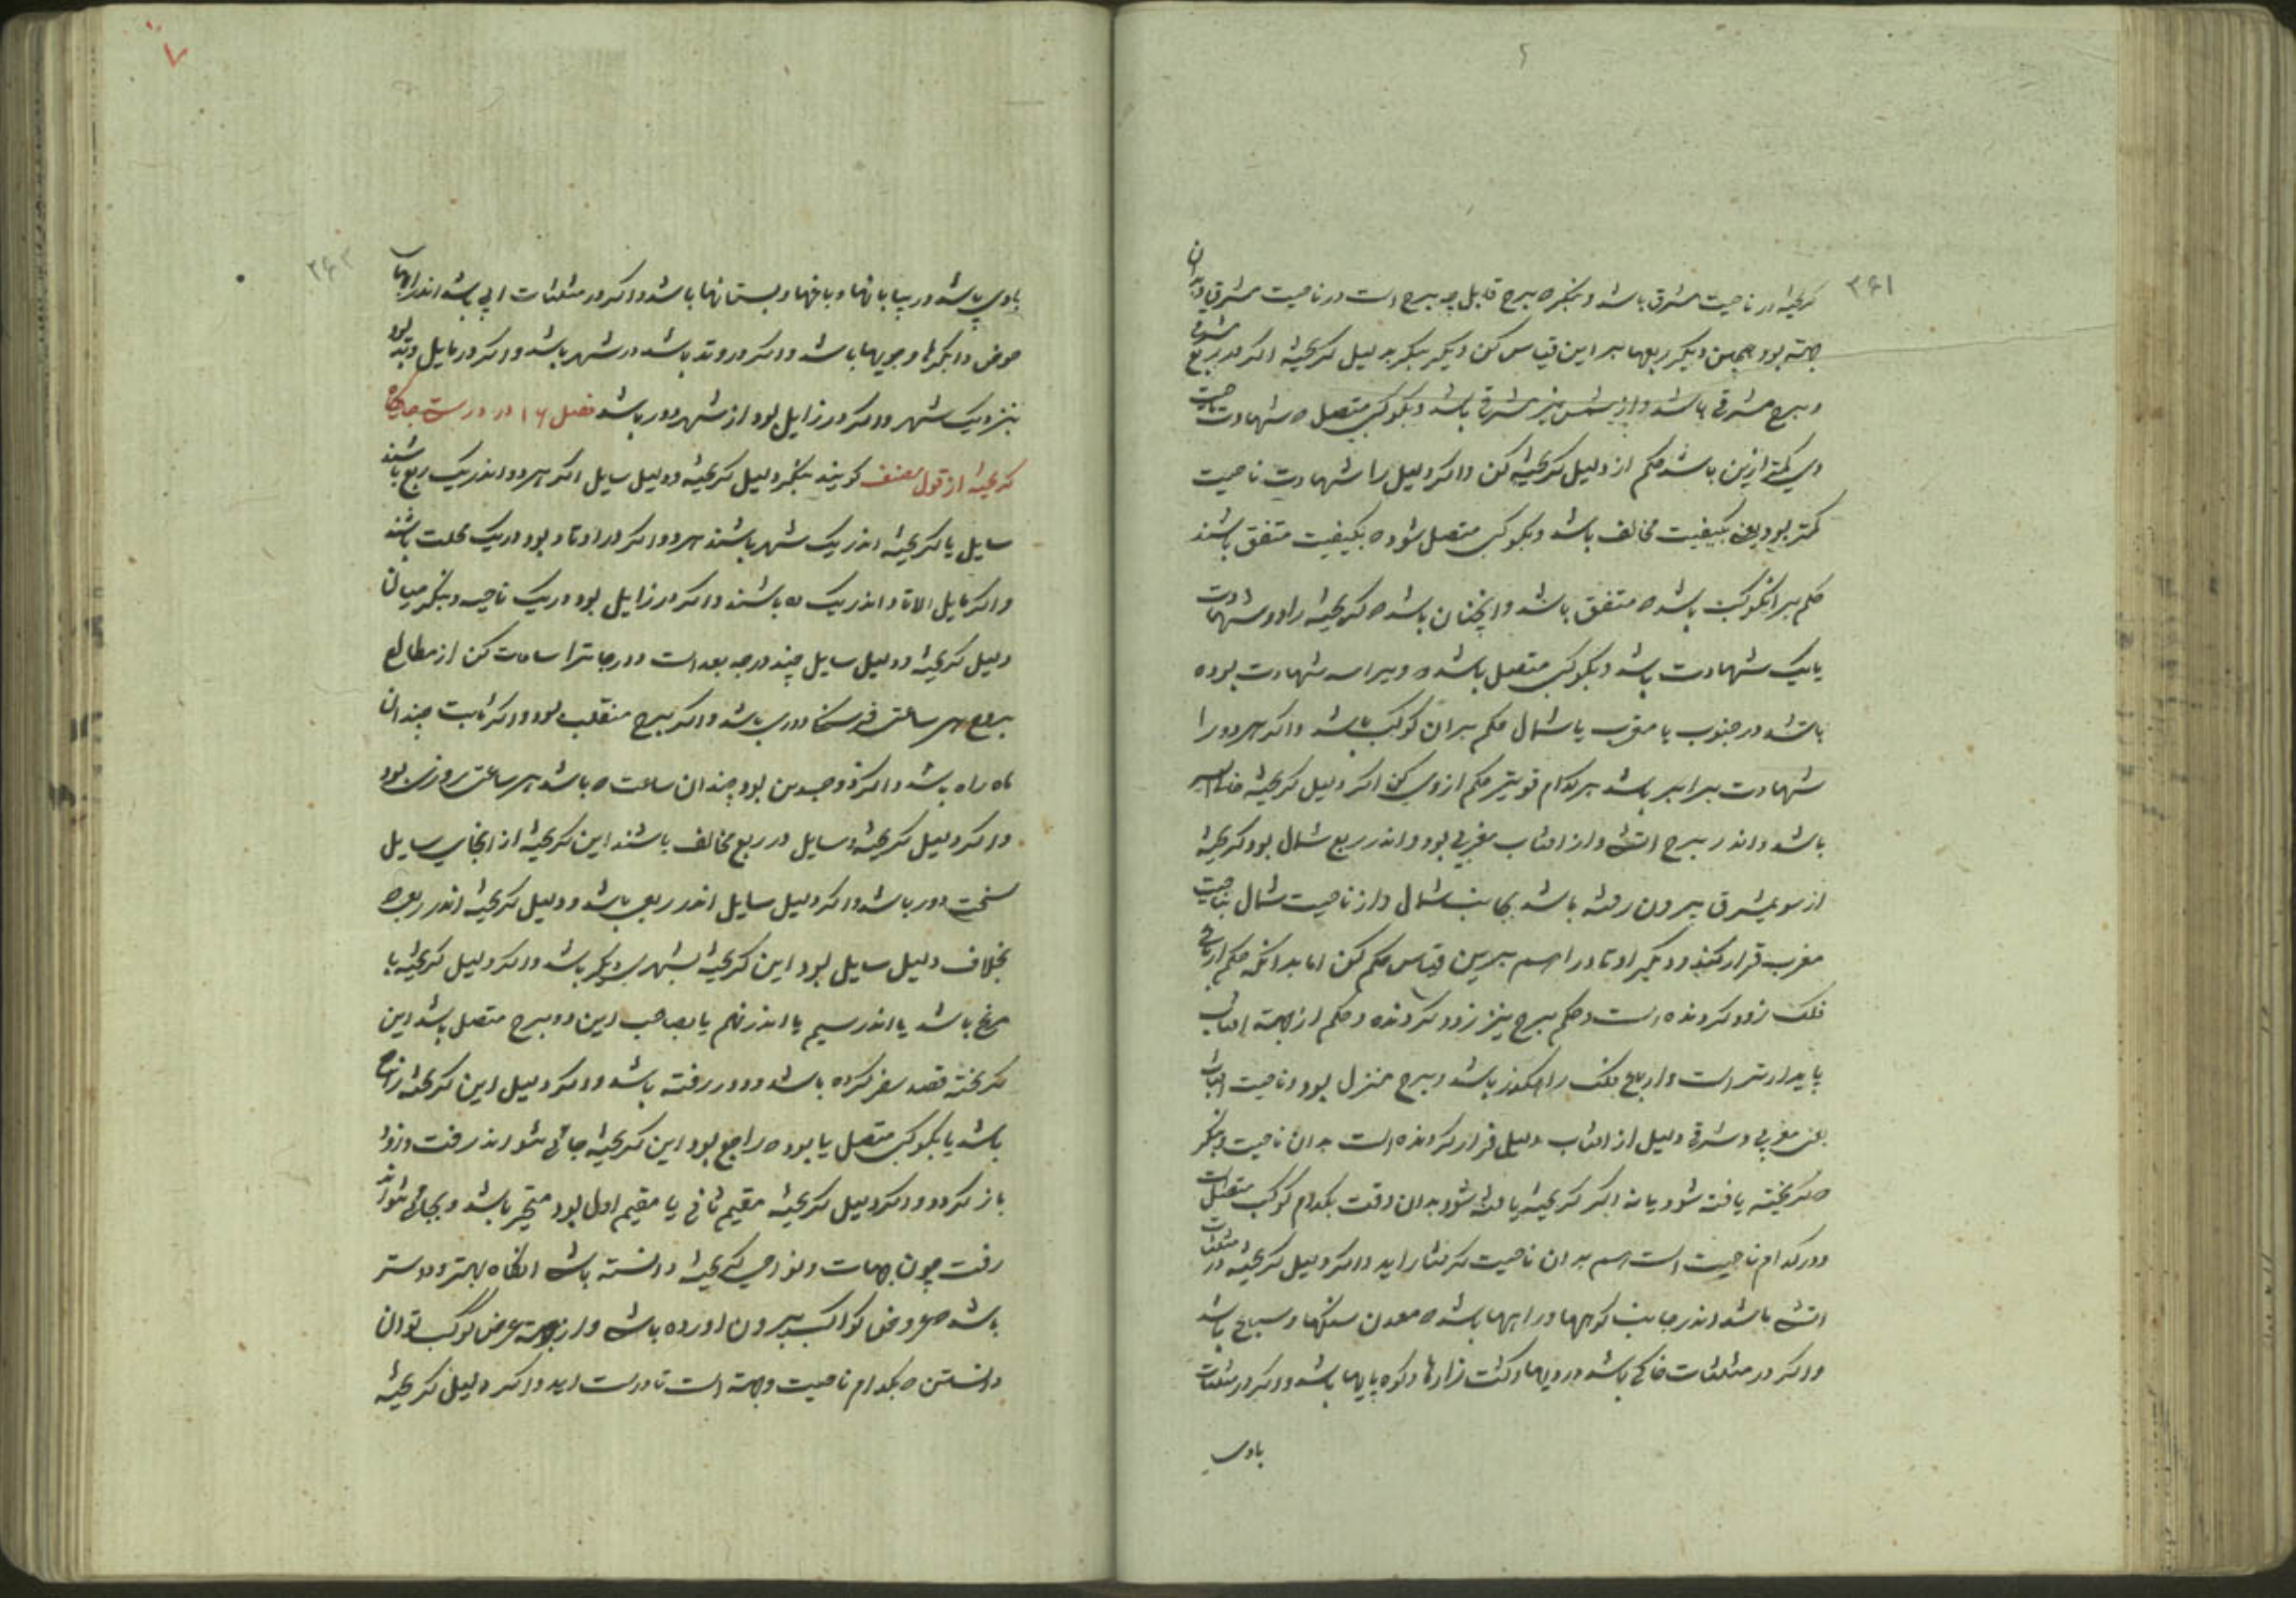 ۲۶۱
گریخته در ناحیت مشرق باشد و بنگر ه برج قابل چه برج است در ناحیت مشرق و ان
جهة بود همچنین دیگر ربعها بر این قیاس کن دیگر بنگر بدلیل گریخته اگر در ربع مشرقی
و برج مشرقی باشد و از شمس نیز مشرقی باشد و بکوکبی متصل ه شهادت ناحیت
وی کمتر ازین باشد حکم از دلیل گریخته کن و اگر دلیل را شهادت ناحیت
کمتر بود یعنی بکیفیت مخالف باشد و بکوکبی متصل شود ه بکیفیت متفق باشند
حکم بر انکوکب باشد ه متفق باشد و اینچنان باشد ه گریخته را دو شهادت
یا یک شهادت باشد و بکوکبی متصل باشد ه ویرا سه شهادت بوده
باشد در جنوب یا مغرب یا شمال حکم بر ان کوکب باشد و اگر هر دو را
شهادت برابر باشد هر کدام قویتر حکم ازوی کن اگر دلیل گریخته
باشد و اندر برج اتشی و از افتاب مغربی بود و اندر ربع شمال بود گریخته
از سوی مشرق بیرون رفته باشد بجانب شمال و از ناحیت شمال بناحیت
مغرب قرار کند و دیگر اوتاد را هم برین قیاس حکم کن اما بدانکه حکم ارباع
فلک زود گردنده است و حکم برج نیز زود گردنده و حکم از جهة افتاب
پایدارتر است و ارباع فلک راهگذر باشد و برج منزل بود و ناحیت افتاب
یعنی مغربی و مشرقی دلیل از افتاب دلیل قرار کردنده است بدان ناحیت و بنگر
ه گریخته یافته شود یا نه اگر گریخته یافته شود بدان وقت بکدام کوکب متصل است
و در کدام ناحیت است هم بر ان ناحیت گرفتار اید و اگر دلیل گریخته در مثلثات
اتشی باشد اندر جانب کوهها و راهها باشد ه معدن سنگها و سباع باشد
و اگر در مثلثات خاکی باشد در دیهها و کشت زارها و کوه پایها باشد و اگر در مثلثات
بادی
۷
۲۶۲
بادی باشد در بیابانها و باغها و بستانها باشد و اگر در مثلثات ابی باشد اندر ابها
حوض و ابگیرها و جویها باشد و اگر در وتد باشد در شهر باشد و اگر در مایل وتد بود
بنزدیک شهر و اگر در زایل بود از شهر دور باشد فصل ۱۶ در درست جایگاه
گریخته از قول مصنف گویند بنگر دلیل گریخته و دلیل سایل اگر هر دو اندر یک ربع باشند
سایل با گریخته اندر یک شهر باشند هر دو و اگر در اوتاد بود در یک محلت باشند
و اگر مایل الاوتاد اندر یک ده باشند و اگر در زایل بود در یک ناحیه و بنگر میان
دلیل گریخته و دلیل سایل چند درجه بعد است و درجاترا ساعات کن از مطالع
بروج هر ساعتی فرسنگی دوری باشد و اگر برج منقلب بود و اگر ثابت چندان
ماه راه باشد و اگر ذوجسدین بود چندان ساعت ه باشد هر ساعتی روزی بود
و اگر دلیل گریخته و سایل در ربع مخالف باشند این گریخته از انجای سایل
سخت دور باشد و اگر دلیل سایل اندر ربعی باشد و دلیل گریخته اندر ربعی ه
بخلاف دلیل سایل بود این گریخته بشهری دیگر باشد و اگر دلیل گریخته با
مریخ باشد یا اندر سیم یا اندر نهم یا بصاحب این دو برج متصل باشد این
گریخته قصد سفر کرده باشد و دور رفته باشد و اگر دلیل این گریخته راجع
باشد یا بکوکبی متصل یا بود ه راجع بود این گریخته جائی نتواند رفت و زود
باز گردد و اگر دلیل گریخته مقیم ثانی یا مقیم اول بود متحیر باشد و بجائی نتواند
رفت چون جهات و نواحی گریخته دانسته باشی انگاه بهتر و درستر
باشد ه عروض کواکب بیرون اورده باشی و از جهة عرض کوکب توان
دانستن ه بکدام ناحیت و جهة است تا درست اید و اگر دلیل گریخته